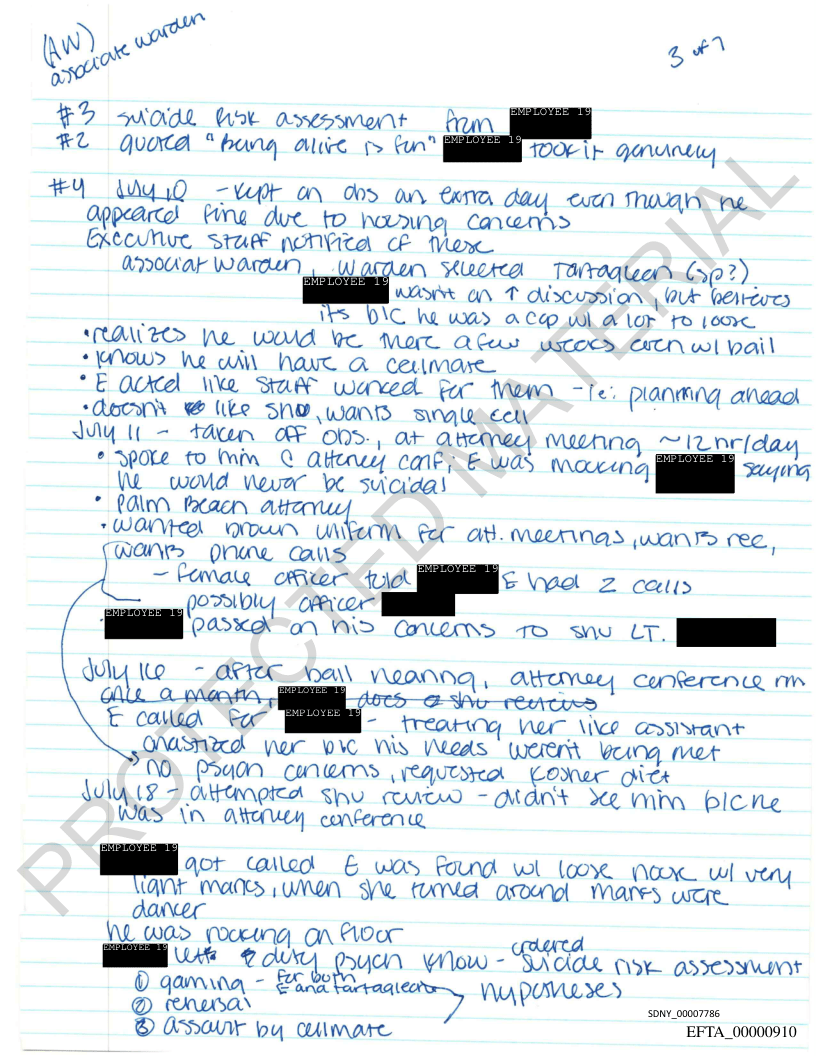 (AW)
associate warden
3 of 7
#3 suicide risk assessment from EMPLOYEE 19
#2 quoted "Being alive is fun" EMPLOYEE 19 took it genuinely
#4 July 10 - kept on obs an extra day even though he
appeared fine due to housing concerns
Executive staff notified of these
associat warden, warden selected Tartagleen (sp?)
EMPLOYEE 19 wasn't on ↑ discussion, but believes
its b/c he was a cop w/ a lot to loose
• realizes he would be there a few weeks even w/ bail
• knows he will have a cellmate
• E acted like staff worked for them - ie: planning ahead
• doesn't like shu, wants single cell
July 11 - taken off obs., at attorney meeting ~12 hr/day
• spoke to him @ attorney conf; E was mocking EMPLOYEE 19 saying
he would never be suicidal
• Palm Beach attorney
• wanted brown uniform for att. meetings, wants rec,
wants phone calls
- female officer told EMPLOYEE 19 E had 2 calls
possibly officer
EMPLOYEE 19 passed on his concerns to shu LT.
July 16 - after bail hearing, attorney conference rm
once a month, EMPLOYEE 19 does shu reviews
E called for EMPLOYEE 19 - treating her like assistant
chastized her b/c his needs weren't being met
no psych concerns, requested kosher diet
July 18 - attempted shu review - didn't see him b/c he
was in attorney conference
EMPLOYEE 19 got called E was found w/ loose noose w/ very
light marks, when she turned around marks were
darker
he was rocking on floor
EMPLOYEE 19 duty psych know - ordered suicide risk assessment
① gaming - for both E and Tartagleen
② rehersal
③ assault by cellmate
hypotheses
PROTECTED MATERIAL
SDNY_00007786
EFTA_00000910